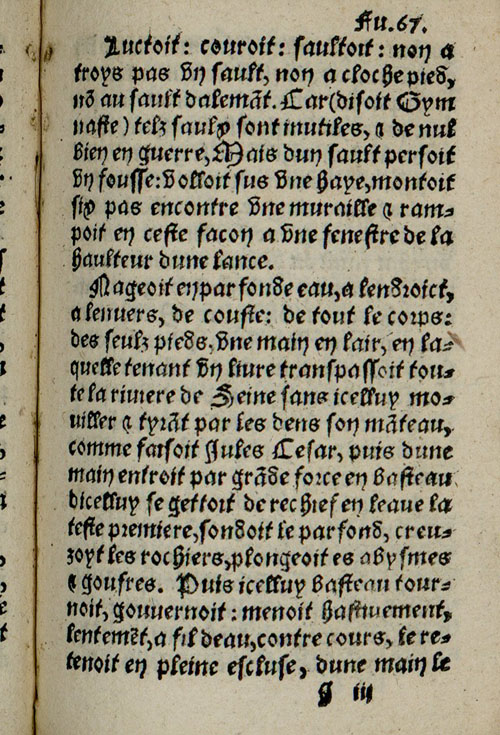 Fu. 67.
Luctoit: couroit: saultoit: non a
troys pas vn sault, non a cloche pied,
nõ au sault dalemãt. Car (disoit Gym
naste) telz saulx sont inutiles, & de nul
bien en guerre, Mais dun sault persoit
vn fousse: volloit sus vne haye, montoit
six pas encontre vne muraille & ram-
poit en ceste facon a vne fenestre de la
haulteur dune lance.
Nageoit en parfonde eau, a lendroict,
a lenuers, de couste: de tout le corps:
des seulz pieds, vne main en lair, en la-
quelle tenant vn liure transpassoit tou-
te la riuiere de Seine sans icelluy mo-
uiller & tyrãt par les dens son mãteau,
comme faisoit Jules Cesar, puis dune
main entroit par grãde force en basteau
dicelluy se gettoit de rechief en leaue la
teste premiere, sondoit le parfond, creu-
zoyt les rochiers, plongeoit es abysmes
& goufres. Puis icelluy basteau tour-
noit, gouuernoit: menoit hastiuement,
lentemẽt, a fil deau, contre cours, le re-
tenoit en pleine escluse, dune main le
g iii